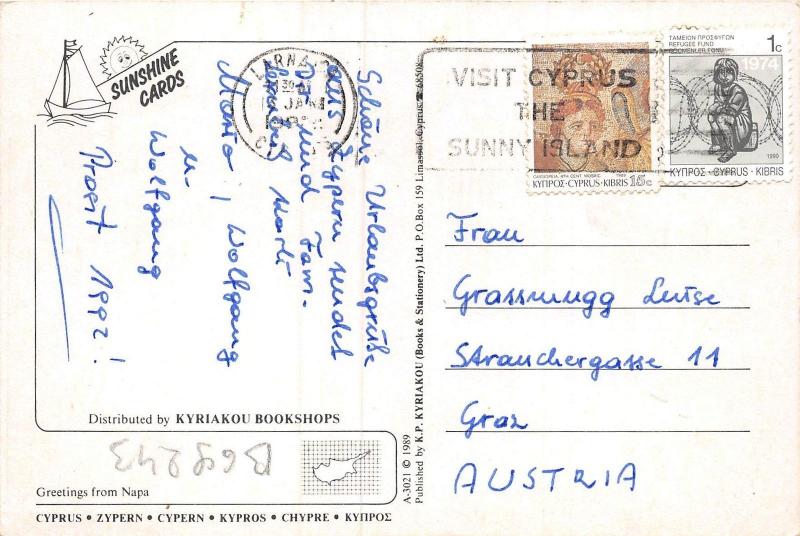 SUNSHINE
CARDS
LARNA
JAN
Schöne Urlaubsgrüße
aus Zypern sendet
Dir und Fam.
Marli
Maria, Wolfgang
u.
Wolfgang
Prosit 1992!
Distributed by KYRIAKOU BOOKSHOPS
B68243
Greetings from Napa
CYPRUS • ZYPERN • CYPERN • KYPROS • CHYPRE • ΚΥΠΡΟΣ
A-3021 © 1989
Published by K.P. KYRIAKOU (Books & Stationery) Ltd. P.O.Box 159 Limassol, Cyprus. ☎ 68508
VISIT CYPRUS
THE
SUNNY ISLAND
ΚΥΠΡΟΣ·CYPRUS·KIBRIS 15c
ΤΑΜΕΙΟΝ ΠΡΟΣΦΥΓΩΝ
REFUGEE FUND
GÖÇMENLER FONU
1c
1974
1990
ΚΥΠΡΟΣ - CYPRUS - KIBRIS
Frau
Grassmugg Luise
Strauchergasse 11
Graz
AUSTRIA